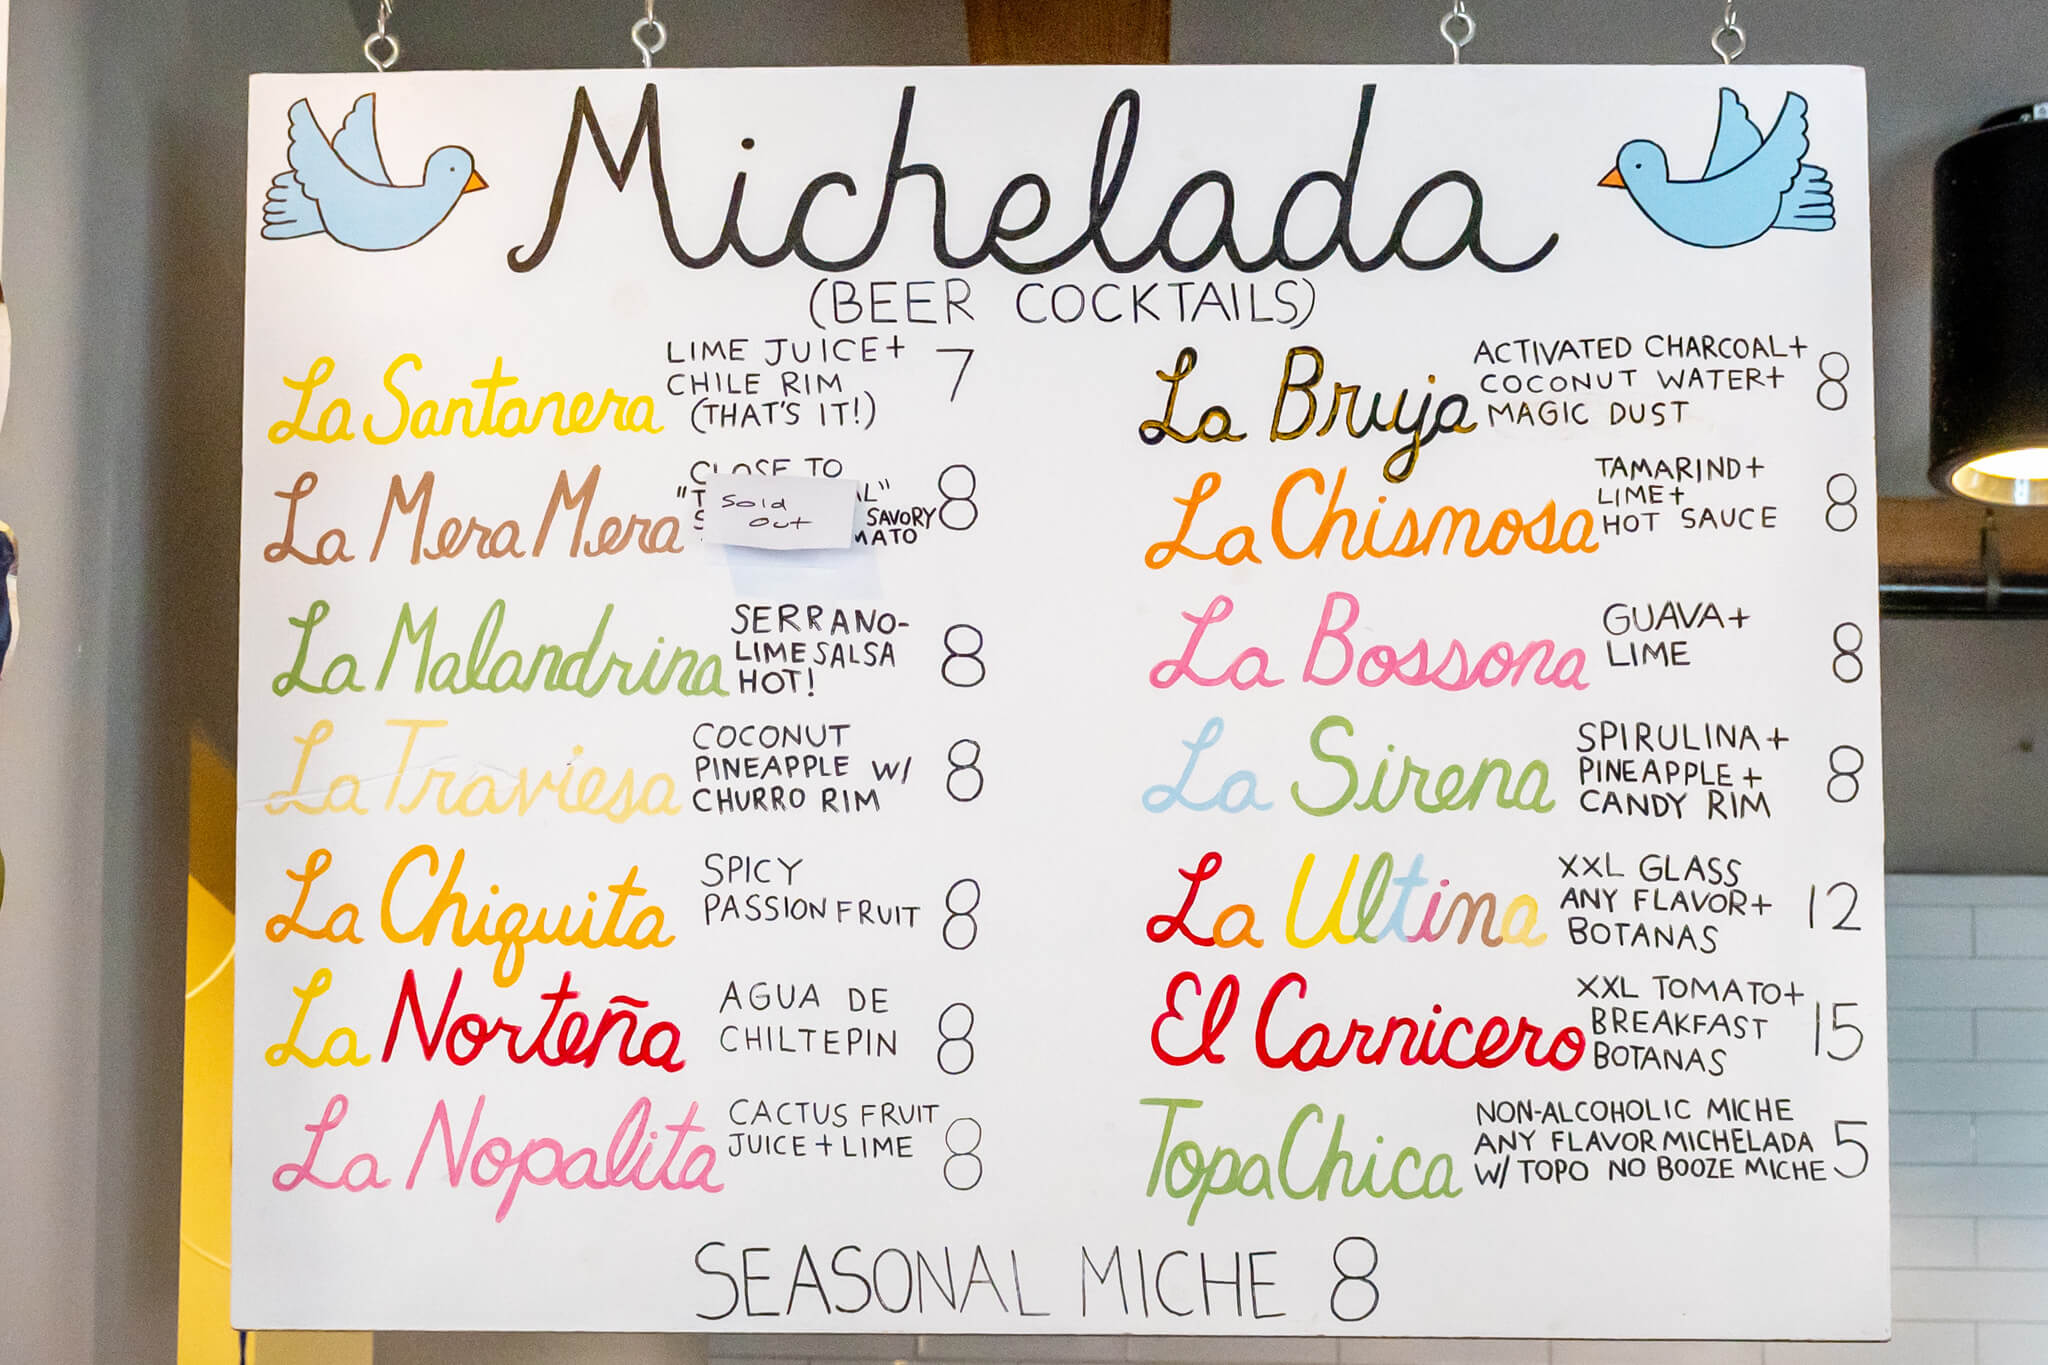 Michelada
(BEER COCKTAILS)
La Santanera
LIME JUICE+
CHILE RIM
(THAT'S IT!)
7
La Mera Mera
CLOSE TO
Sold
out
SAVORY
8
La Malandrina
SERRANO-
LIME SALSA
HOT!
8
La Traviesa
COCONUT
PINEAPPLE W/
CHURRO RIM
8
La Chiquita
SPICY
PASSION FRUIT
8
La Norteña
AGUA DE
CHILTEPIN
8
La Nopalita
CACTUS FRUIT
JUICE+LIME
8
La Bruja
ACTIVATED CHARCOAL+
COCONUT WATER+
MAGIC DUST
8
La Chismosa
TAMARIND+
LIME+
HOT SAUCE
8
La Bossona
GUAVA+
LIME
8
La Sirena
SPIRULINA+
PINEAPPLE+
CANDY RIM
8
La Ultina
XXL GLASS
ANY FLAVOR+
BOTANAS
12
El Carnicero
XXL TOMATO+
BREAKFAST
BOTANAS
15
Topa Chica
NON-ALCOHOLIC MICHE
ANY FLAVOR MICHELADA
W/ TOPO NO BOOZE MICHE
5
SEASONAL MICHE 8